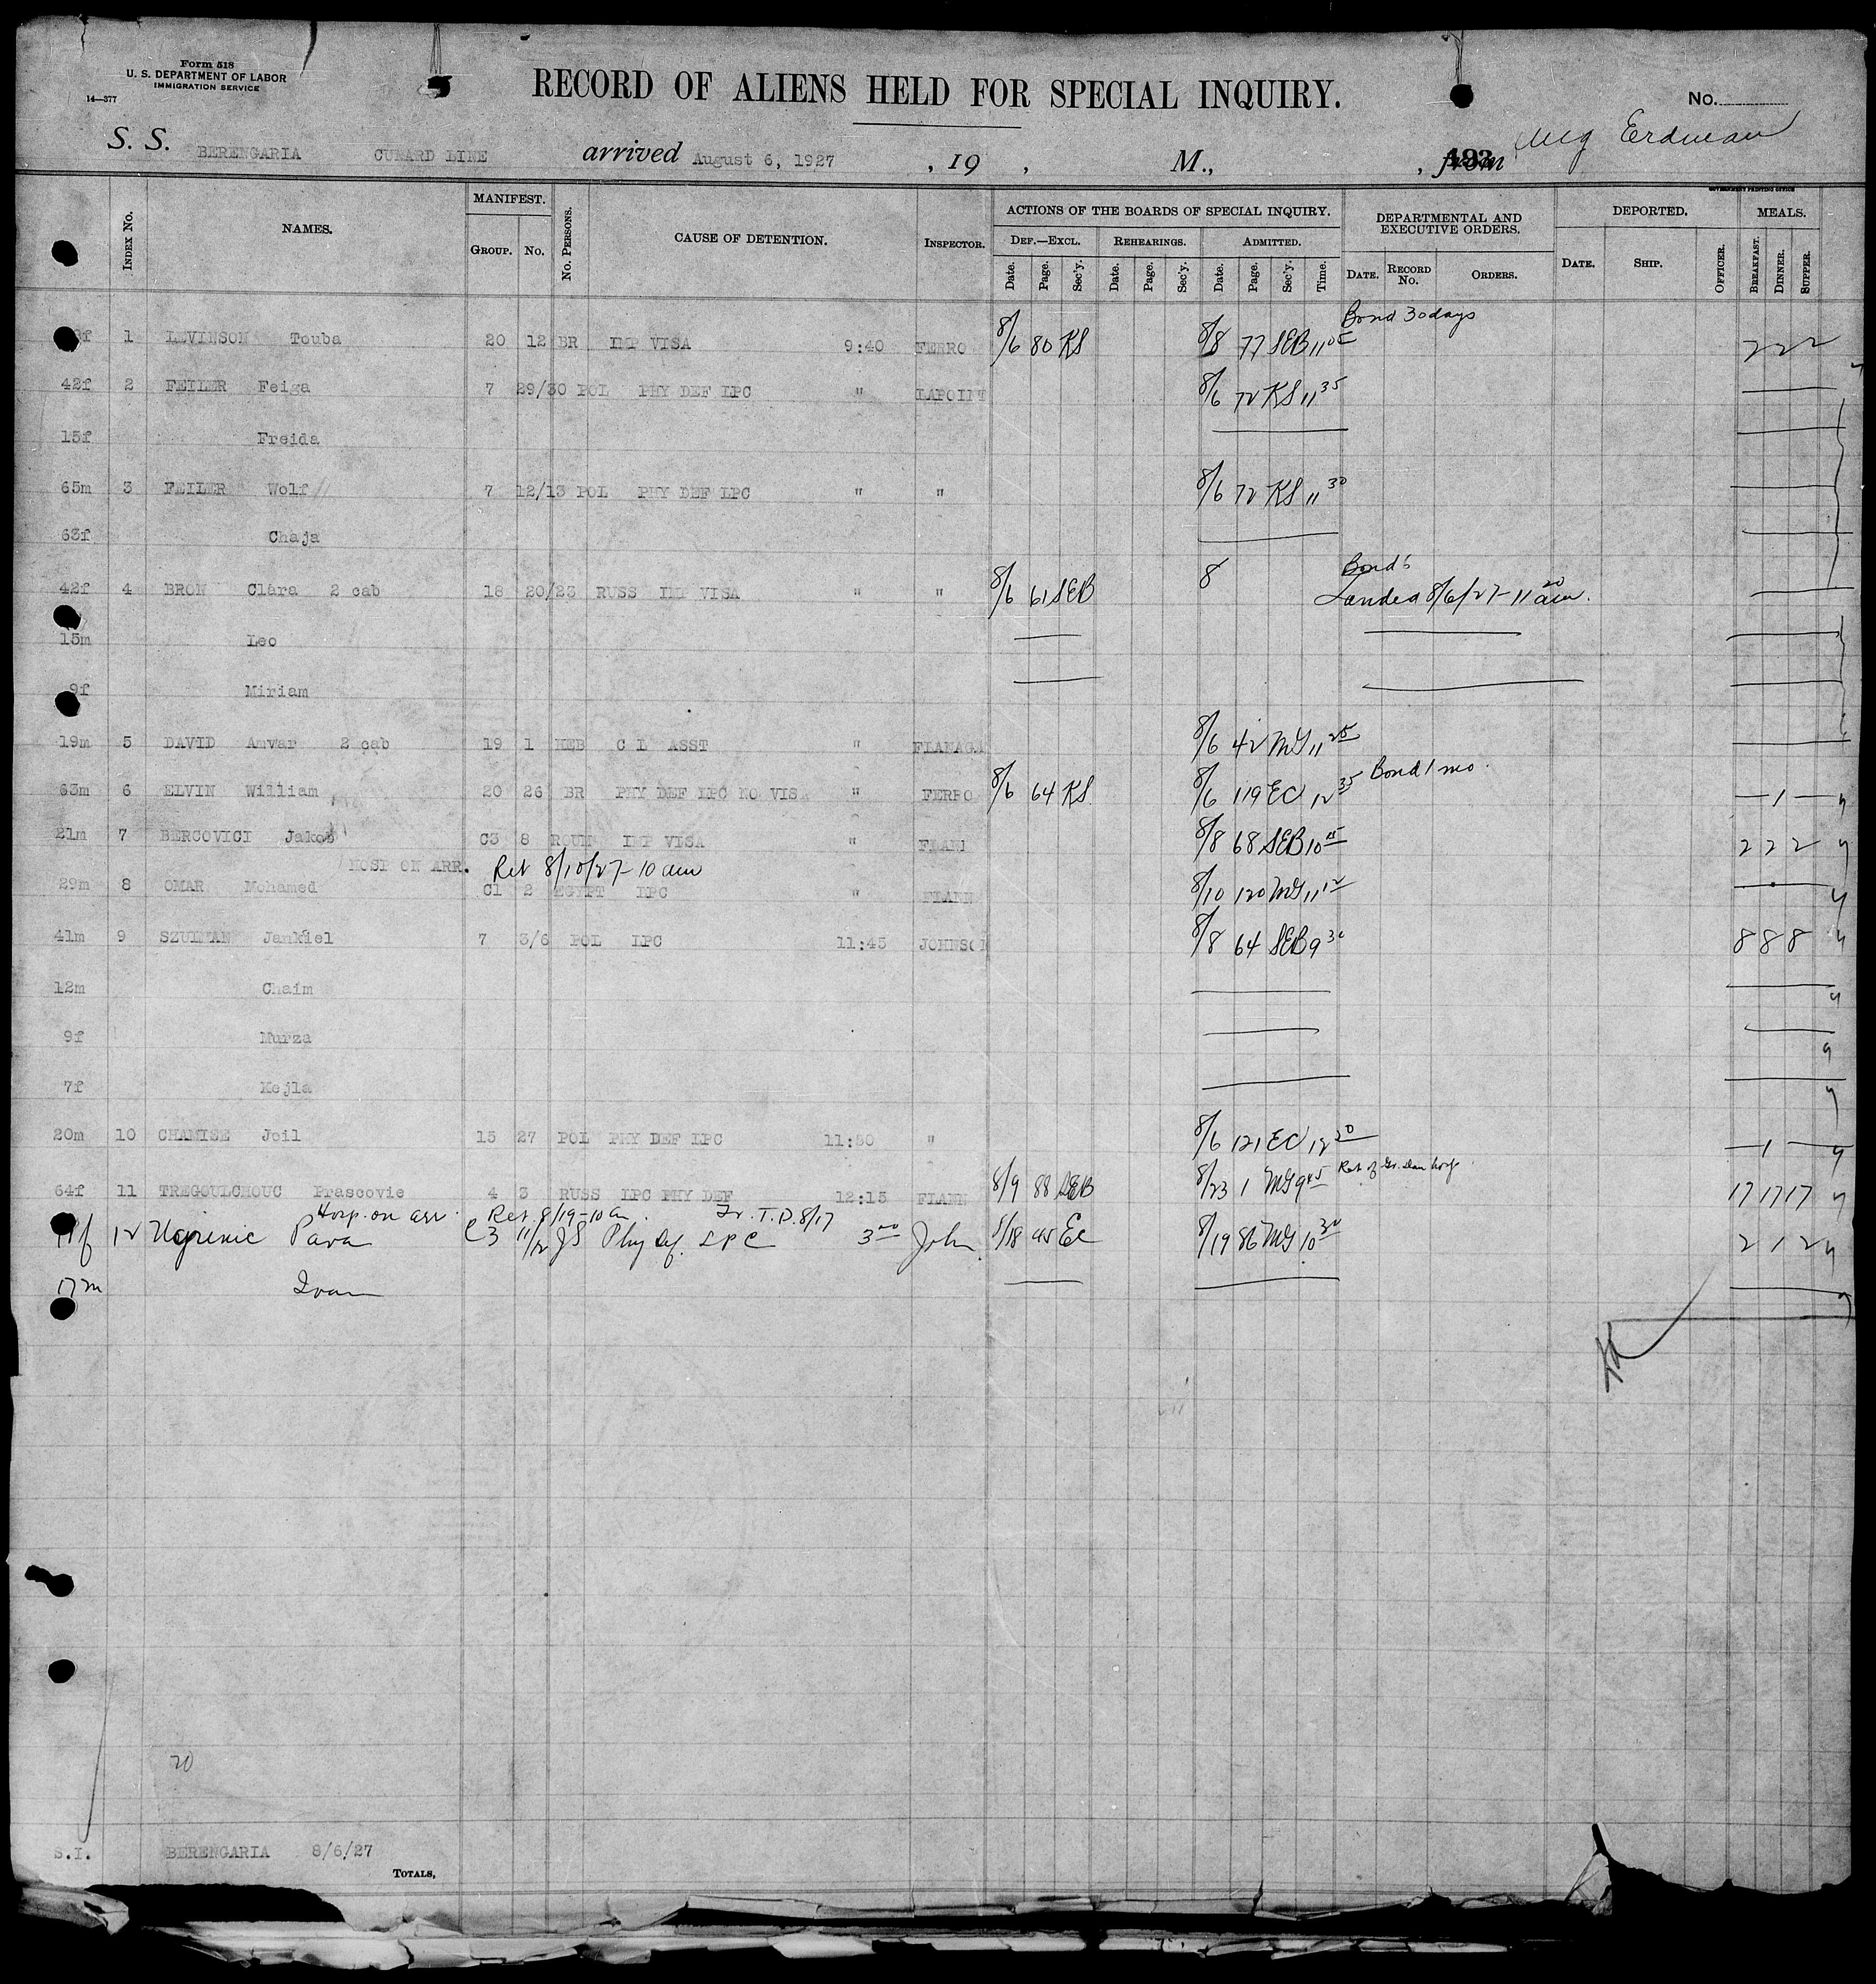 Form 518
U. S. DEPARTMENT OF LABOR
IMMIGRATION SERVICE
14—377
RECORD OF ALIENS HELD FOR SPECIAL INQUIRY.
No.
S. S. BERENGARIA CUNARD LINE arrived August 6, 1927 , 19 , M., , from Erdman
GOVERNMENT PRINTING OFFICE
INDEX NO. NAMES. MANIFEST. NO. PERSONS. CAUSE OF DETENTION. INSPECTOR. ACTIONS OF THE BOARDS OF SPECIAL INQUIRY. DEPARTMENTAL AND EXECUTIVE ORDERS. DEPORTED. MEALS.
GROUP. NO. DEF.—EXCL. REHEARINGS. ADMITTED.
Date. Page. Sec'y. Date. Page. Sec'y. Date. Page. Sec'y. Time. DATE. RECORD NO. ORDERS. DATE. SHIP. OFFICER. BREAKFAST. DINNER. SUPPER.
Bond 30 days
f 1 LEVINSON Touba 20 12 BR IMP VISA 9:40 FERRO 8/6 80 KS 8/8 77 SEB 11 05 2 2 2
42f 2 FEILER Feiga 7 29/30 POL PHY DEF LPC " LAPOINT 8/6 72 KS 11 35
15f Freida
65m 3 FEILER Wolf 7 12/13 POL PHY DEF LPC " " 8/6 72 KS 11 30
63f Chaja
Bond's
42f 4 BRON Clara 2 cab 18 20/23 RUSS IMP VISA " " 8/6 61 SEB 8 Landed 8/6/27 - 11 20 am.
15m Leo
9f Miriam
19m 5 DAVID Anvar 2 cab 19 1 HEB C L ASST " FLANAGA 8/6 42 MG 11 25
63m 6 ELVIN William 20 26 BR PHY DEF LPC NO VISA " FERRO 8/6 64 KS 8/6 119 EC 12 35 Bond 1 mo. 1
21m 7 BERCOVICI Jakob C3 8 ROUM IMP VISA " FLANN 8/8 68 SEB 10 2 2 2
HOSP ON ARR. Ret 8/10/27 - 10 am
29m 8 OMAR Mohamed C1 2 EGYPT LPC " FLANN 8/10 120 MG 11 12
41m 9 SZULMAN Jankiel 7 3/6 POL LPC 11:45 JOHNSON 8/8 64 SEB 9 30 8 8 8
12m Chaim
9f Murza
7f Kejla
20m 10 CHAMISE Joil 15 27 POL PHY DEF LPC 11:50 " 8/6 121 EC 12 20 1
64f 11 TREGOULCHOUC Prascovie 4 3 RUSS LPC PHY DEF 12:15 FLANN 8/9 88 SEB 8/23 1 MG 9 45 17 17 17
Hosp. on arr. Ret. 8/19 - 10 a. Tr. T.D. 8/17
f 12 Ugrinic Pava C3 11/12 JS Phy Def. LPC 3 00 John. 8/18 45 EC 8/19 86 MG 10 30 2 1 2
17m Ivan
20
S.I. BERENGARIA 8/6/27
TOTALS,